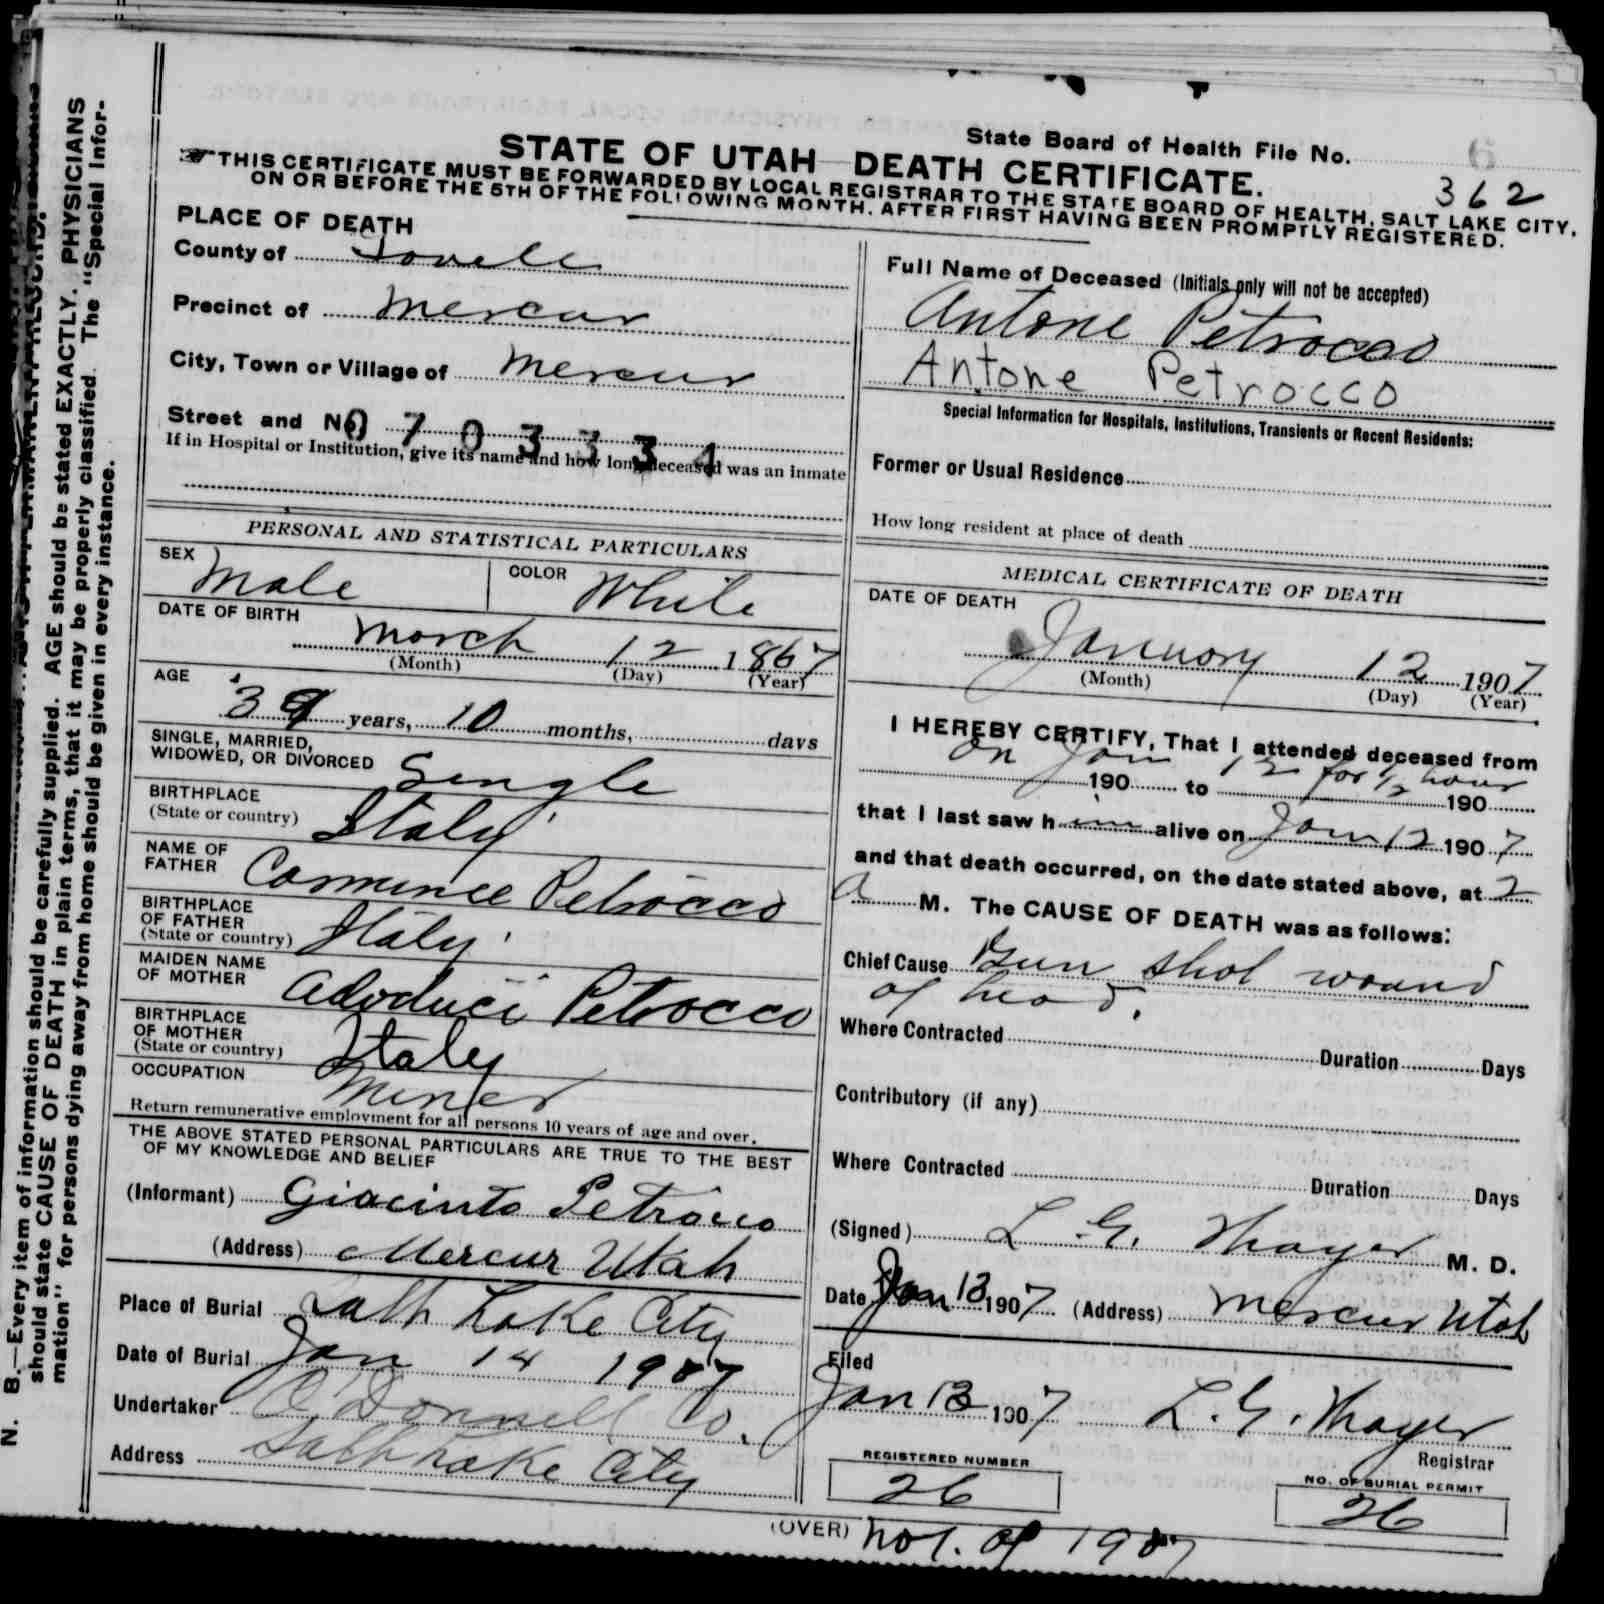 State Board of Health File No. 6
362
STATE OF UTAH DEATH CERTIFICATE.
THIS CERTIFICATE MUST BE FORWARDED BY LOCAL REGISTRAR TO THE STATE BOARD OF HEALTH, SALT LAKE CITY,
ON OR BEFORE THE 5TH OF THE FOLLOWING MONTH, AFTER FIRST HAVING BEEN PROMPTLY REGISTERED.
PLACE OF DEATH
County of Tooele
Precinct of Mercur
City, Town or Village of Mercur
Street and No.
0703334
If in Hospital or Institution, give its name and how long deceased was an inmate
PERSONAL AND STATISTICAL PARTICULARS
SEX Male COLOR White
DATE OF BIRTH
March 12 1867
(Month) (Day) (Year)
AGE
39 years, 10 months, days
SINGLE, MARRIED,
WIDOWED, OR DIVORCED Single
BIRTHPLACE
(State or country) Italy
NAME OF
FATHER Petrocco
BIRTHPLACE
OF FATHER
(State or country) Italy
MAIDEN NAME
OF MOTHER Petrocco
BIRTHPLACE
OF MOTHER
(State or country) Italy
OCCUPATION Miner
Return remunerative employment for all persons 10 years of age and over.
THE ABOVE STATED PERSONAL PARTICULARS ARE TRUE TO THE BEST
OF MY KNOWLEDGE AND BELIEF
(Informant) Giacinto Petrocco
(Address) Mercur Utah
Place of Burial Salt Lake City
Date of Burial Jan 14 1907
Undertaker O'Donnell Co.
Address Salt Lake City
Full Name of Deceased (Initials only will not be accepted)
Antone Petrocco
Antone Petrocco
Special Information for Hospitals, Institutions, Transients or Recent Residents:
Former or Usual Residence
How long resident at place of death
MEDICAL CERTIFICATE OF DEATH
DATE OF DEATH
January 12 1907
(Month) (Day) (Year)
I HEREBY CERTIFY, That I attended deceased from
on Jan 12 for 1/2 hour
190 to 190
that I last saw him alive on Jan 12 1907
and that death occurred, on the date stated above, at 2
a M. The CAUSE OF DEATH was as follows:
Chief Cause Gun shot wound
of head.
Where Contracted Duration Days
Contributory (if any)
Where Contracted Duration Days
(Signed) L. G. Thayer M. D.
Date Jan 13 1907 (Address) Mercur Utah
Filed
Jan 13 1907 L. G. Thayer
Registrar
REGISTERED NUMBER
26
NO. OF BURIAL PERMIT
26
(OVER) No 1. of 1907
N. B.—Every item of information should be carefully supplied. AGE should be stated EXACTLY. PHYSICIANS
should state CAUSE OF DEATH in plain terms, that it may be properly classified. The "Special Infor-
mation" for persons dying away from home should be given in every instance.